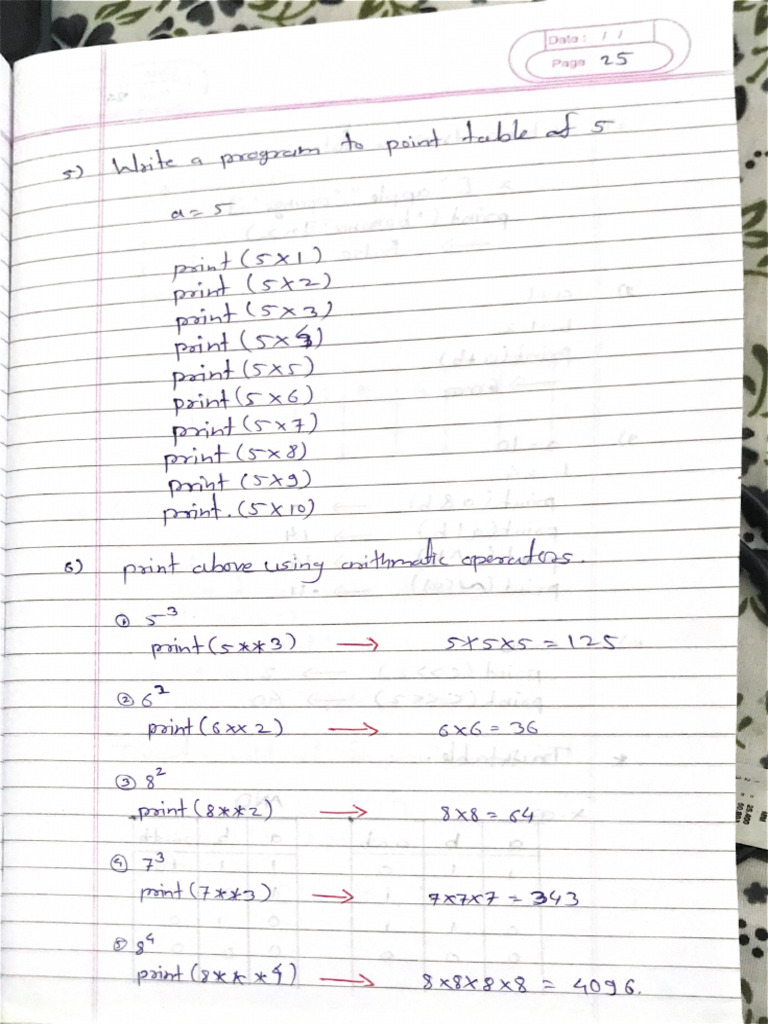 Date: / /
Page 25
5) Write a program to point table of 5
a = 5
print (5×1)
print (5×2)
print (5×3)
print (5×4)
print (5×5)
print (5×6)
print (5×7)
print (5×8)
print (5×9)
print. (5×10)
6) print above using arithmatic operators.
① 5³
print (5**3) → 5×5×5 = 125
② 6²
print (6**2) → 6×6 = 36
③ 8²
print (8**2) → 8×8 = 64
④ 7³
print (7**3) → 7×7×7 = 343
⑤ 8⁴
print (8***4) → 8×8×8×8 = 4096.